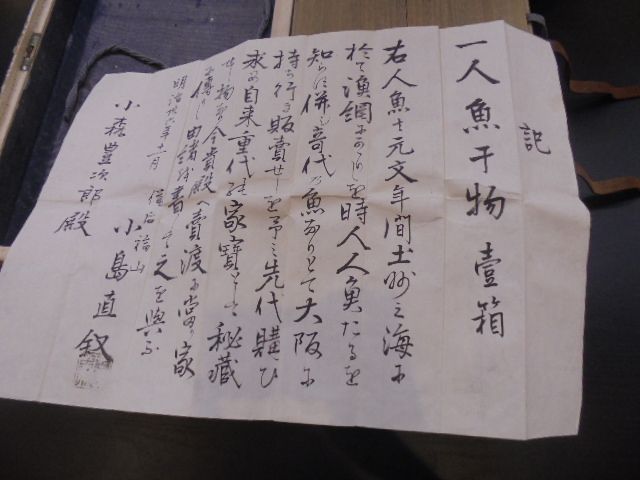 記
一人魚干物 壹箱
右人魚ハ元文年間土州之海に
於て漁網にかゝりしを時人人魚たるを
知らす併も奇代の魚なりとて大阪に
持ち行き販賣せしを予之先代購ひ
求め自来重代の家寳として秘蔵
せし物 今貴殿へ賣渡すに當り家
に傳はりし由緒を書して之を與ふ
明治 六年十一月 備后福山
小島直叙
小森豊次郎殿